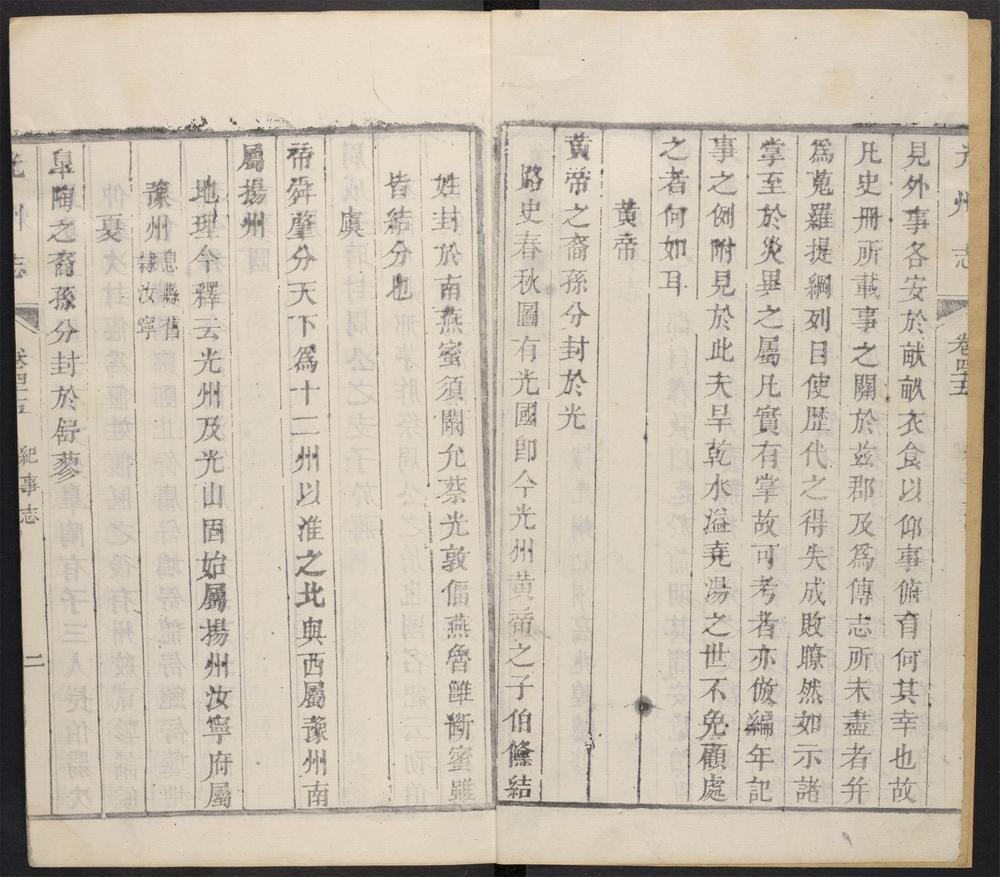 光州志
卷四五
見外事各安於畎畝衣食以仰事俯育何其幸也故
凡史冊所載事之關於兹郡及爲傳志所未盡者幷
爲蒐羅提綱列目使歷代之得失成敗瞭然如示諸
掌至於炎異之屬凡實有掌故可考者亦倣編年記
事之例附見於此夫旱乾水溢堯湯之世不免顧處
之者何如耳
黃帝
黃帝之裔孫分封於光
路史春秋圖有光國卽今光州黃帝之子伯鯈結
姓封於南燕蜜須闞允蔡光敦偪燕魯雝斷蜜雖
皆結分也
虞
帝舜肇分天下爲十二州以淮之北與西屬豫州南
屬揚州
地理今釋云光州及光山固始屬揚州汝寧府屬
豫州息縣舊隸汝寧
夏
臯陶之裔孫分封於舒蓼
光州志
卷四五
紀事志
二